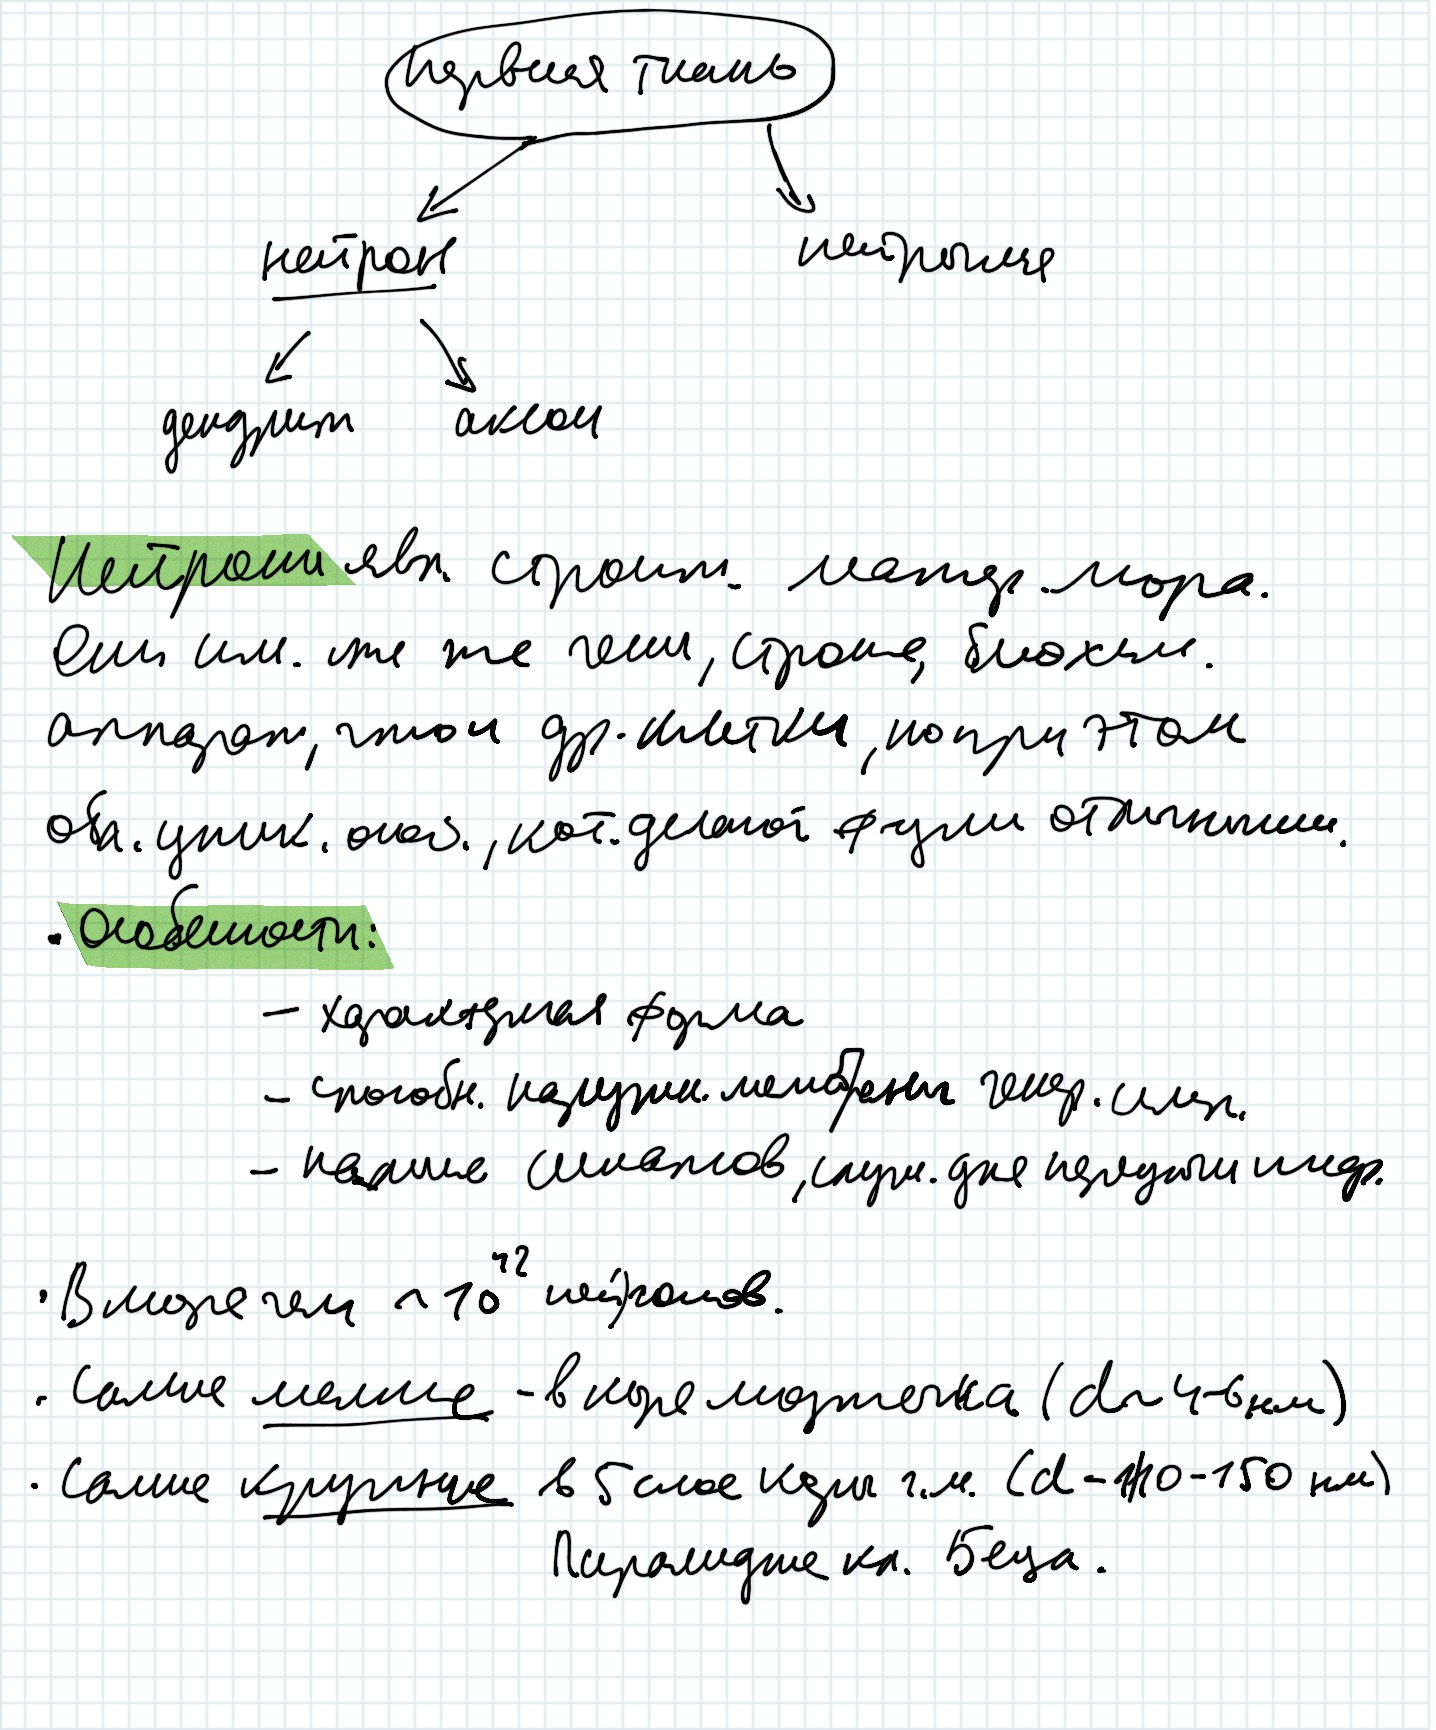 нервная ткань
нейрон нейроглия
дендрит аксон
Нейроны явл. строит. матер. мозга.
Они им. те же гены, строение, биохим.
аппарат, что и др. клетки, но при этом
обл. уник. особ., кот. делают ф-ции отличными.
· Особенности:
– характерная форма
– способн. наружн. мембраны генер. имп.
– наличие синапсов, служ. для передачи инф.
· В мозге чел ~ 10¹² нейронов.
· Самые мелкие - в коре мозжечка (d ~ 4-6 нм)
· Самые крупные в 5 слое коры г.м. (d – 110-150 нм)
Пирамидные кл. Беца.